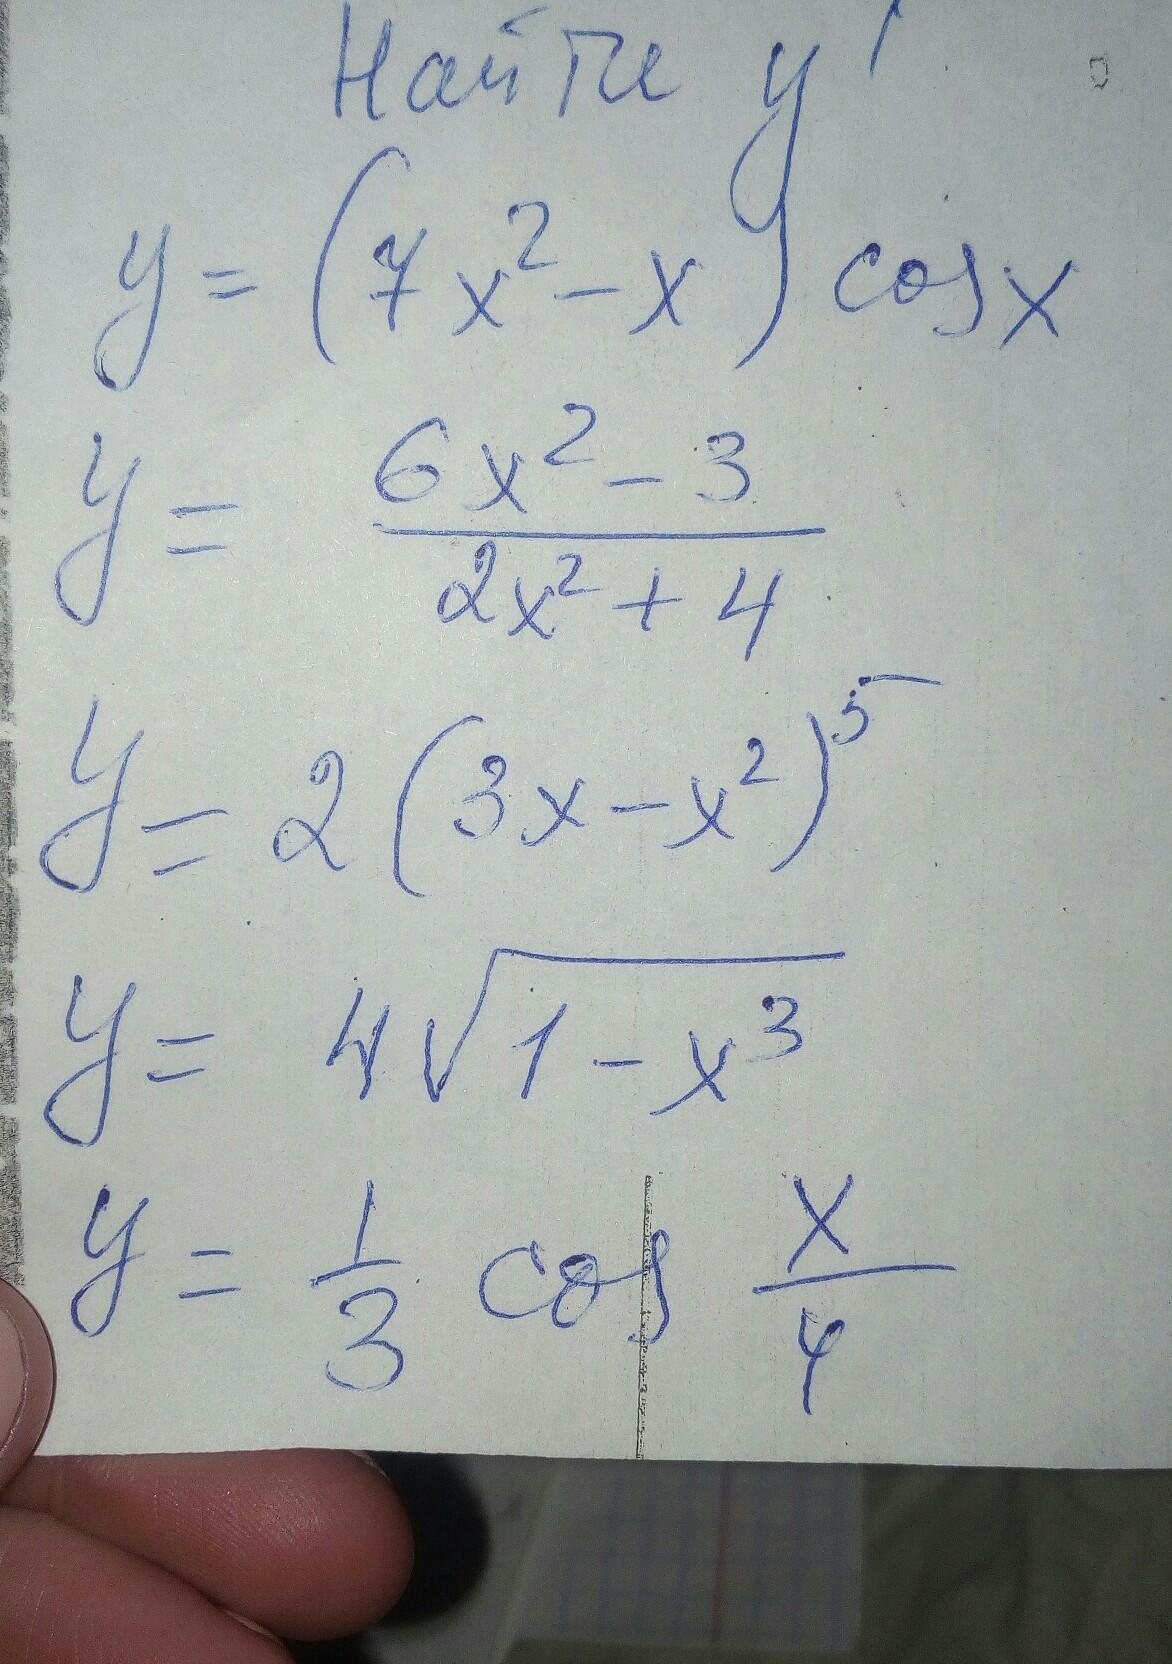 Найти y'
y = (7x² - x) cos x
y = (6x² - 3)/(2x² + 4)
y = 2(3x - x²)⁵
y = 4√(1 - x³)
y = 1/3 cos x/4